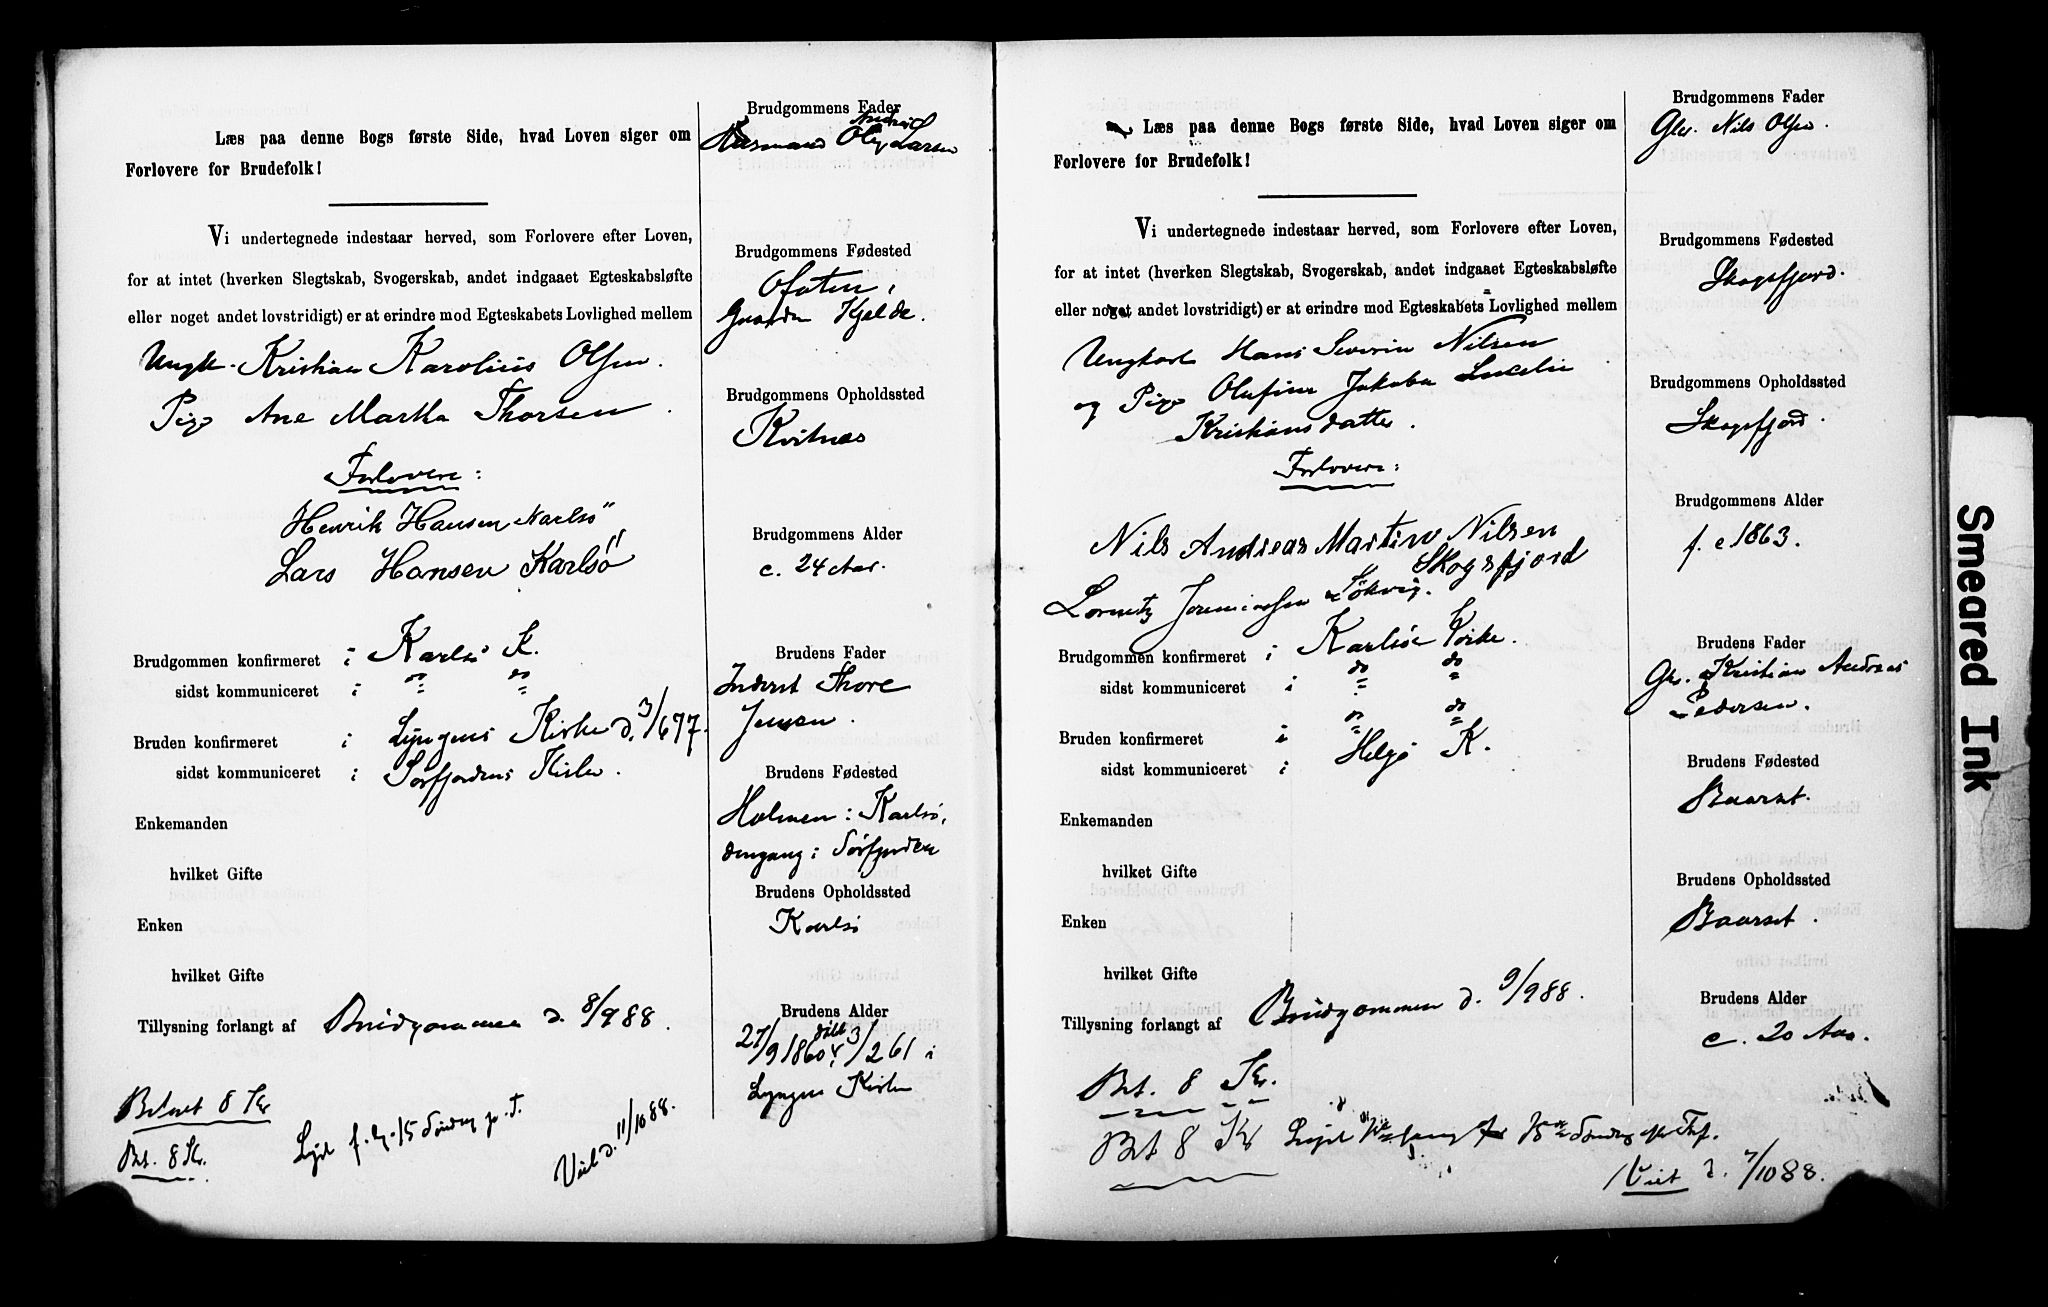 Læs paa denne Bogs første Side, hvad Loven siger om
Forlovere for Brudefolk!
Vi undertegnede indestaar herved, som Forlovere efter Loven,
for at intet (hverken Slegtskab, Svogerskab, andet indgaaet Egteskabsløfte
eller noget andet lovstridigt) er at erindre mod Egteskabets Lovlighed mellem
Ungk. Kristian Karolius Olsen.
Pige Ane Martha Thorsen.
Forlovere:
Henrik Hansen Karlsö
Lars Hansen Karlsö
Brudgommen konfirmeret i Karlsö K.
sidst kommuniceret i do do
Bruden konfirmeret i Lyngens Kirke d. 3/6 77.
sidst kommuniceret i Sørfjordens Kirke.
Enkemanden
hvilket Gifte
Enken
hvilket Gifte
Tillysning forlangt af Brudgommen d. 8/9 88.
Betalt 8 Kr
Bet. 8 Kr.
Lyst f. g. 15 Søndag p. T.
Viet d. 11/10 88.
Brudgommens Fader
Olsen Larsen
Brudgommens Fødested
Ofoten,
Gaarden Kjelde.
Brudgommens Opholdssted
Kvitnæs
Brudgommens Alder
c. 24 Aar.
Brudens Fader
Inderst Thore
Jensen.
Brudens Fødested
Holmen i Karlsö,
dengang i Sørfjorden
Brudens Opholdssted
Karlsö
Brudens Alder
27/9 1860, døbt 3/2 61 i
Lyngens Kirke
Læs paa denne Bogs første Side, hvad Loven siger om
Forlovere for Brudefolk!
Vi undertegnede indestaar herved, som Forlovere efter Loven,
for at intet (hverken Slegtskab, Svogerskab, andet indgaaet Egteskabsløfte
eller noget andet lovstridigt) er at erindre mod Egteskabets Lovlighed mellem
Ungkarl Hans Severin Nilsen
og Pige Olufine Jakoba
Kristiansdatter.
Forlovere:
Nils Andreas Martin Nilsen
Skogsfjord
Lornts Jeremiassen Løkvig.
Brudgommen konfirmeret i Karlsö Kirke.
sidst kommuniceret i do do
Bruden konfirmeret i do do
sidst kommuniceret i Helgö K.
Enkemanden
hvilket Gifte
Enken
hvilket Gifte
Tillysning forlangt af Brudgommen d. 9/9 88.
Bet. 8 Kr.
Bet 8 Kr Lyst gang 15de Søndag efter Tref.
Viet d. 7/10 88.
Brudgommens Fader
Gbr. Nils Olsen.
Brudgommens Fødested
Skogsfjord.
Brudgommens Opholdssted
Skogsfjord.
Brudgommens Alder
f. c 1863.
Brudens Fader
Gbr. Kristian Andreas
Pedersen.
Brudens Fødested
Baarset.
Brudens Opholdssted
Baarset.
Brudens Alder
c. 20 Aar.
Smeared Ink